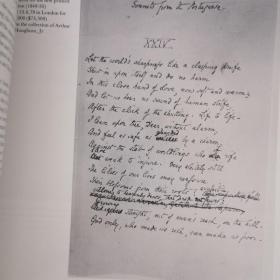 the new printed
(1849-50)
in London for
000 ($73,500)
the collection of Arthur
Houghton, Jr
Sonnets from the Portuguese.
XXIV.
Let the world's sharpness like a clasping knife
Shut in upon itself and do no harm
In this close hand of love, now soft and warm;
And let us hear no sound of human strife,
After the click of the shutting. Life to life -
I lean upon thee, Dear, without alarm,
And feel as safe as guarded by a charm,
Against the stab of worldlings who if rife
Are weak to injure. Very whitely still
The lilies of our lives may reassure
Their blossoms from their roots!
straight, out of man's reach, on the hill.
God only, who made us rich, can make us poor.